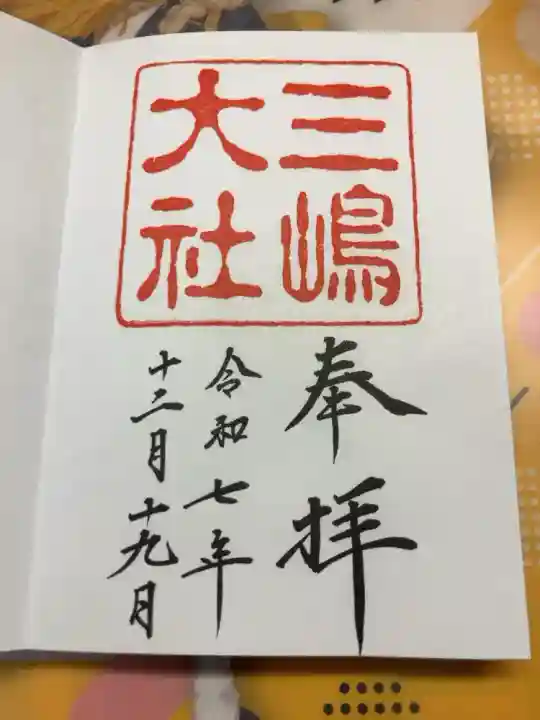 三嶋
大社
奉拝
令和七年
十二月十九日